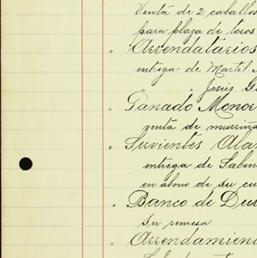 Venta de 2 caballos
para plaza de toros
Arrendatarios
entrega de Martel
Jesús G
Ganado Menor
venta de
Sirvientes Ala
entrega de Sabin
en abono de su cu
Banco de Du
Su remesa
Arrendamien